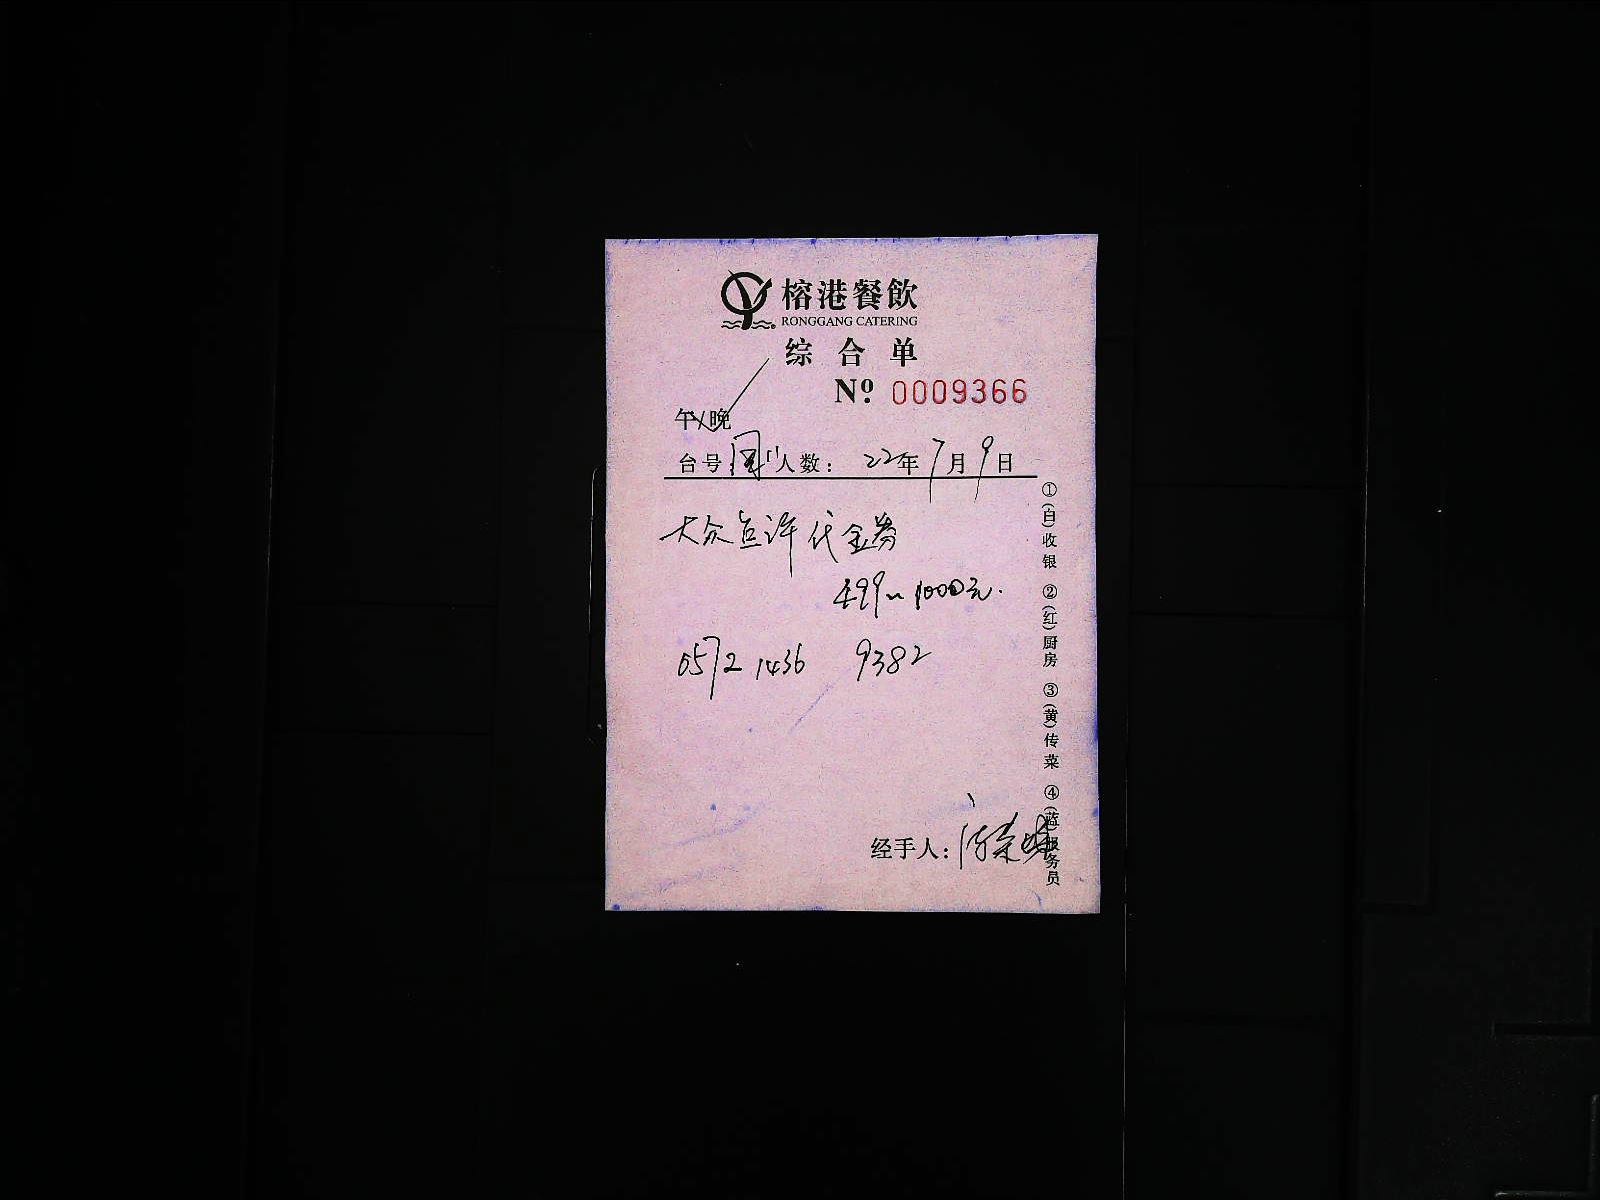 榕港餐飲
RONGGANG CATERING
综合单
Nº 0009366
午/晚
台号: 人数: 22年7月9日
大众点评代金券
499~1000元.
0572 1436 9382
经手人:
①(白)收银 ②(红)厨房 ③(黄)传菜 ④(蓝)服务员